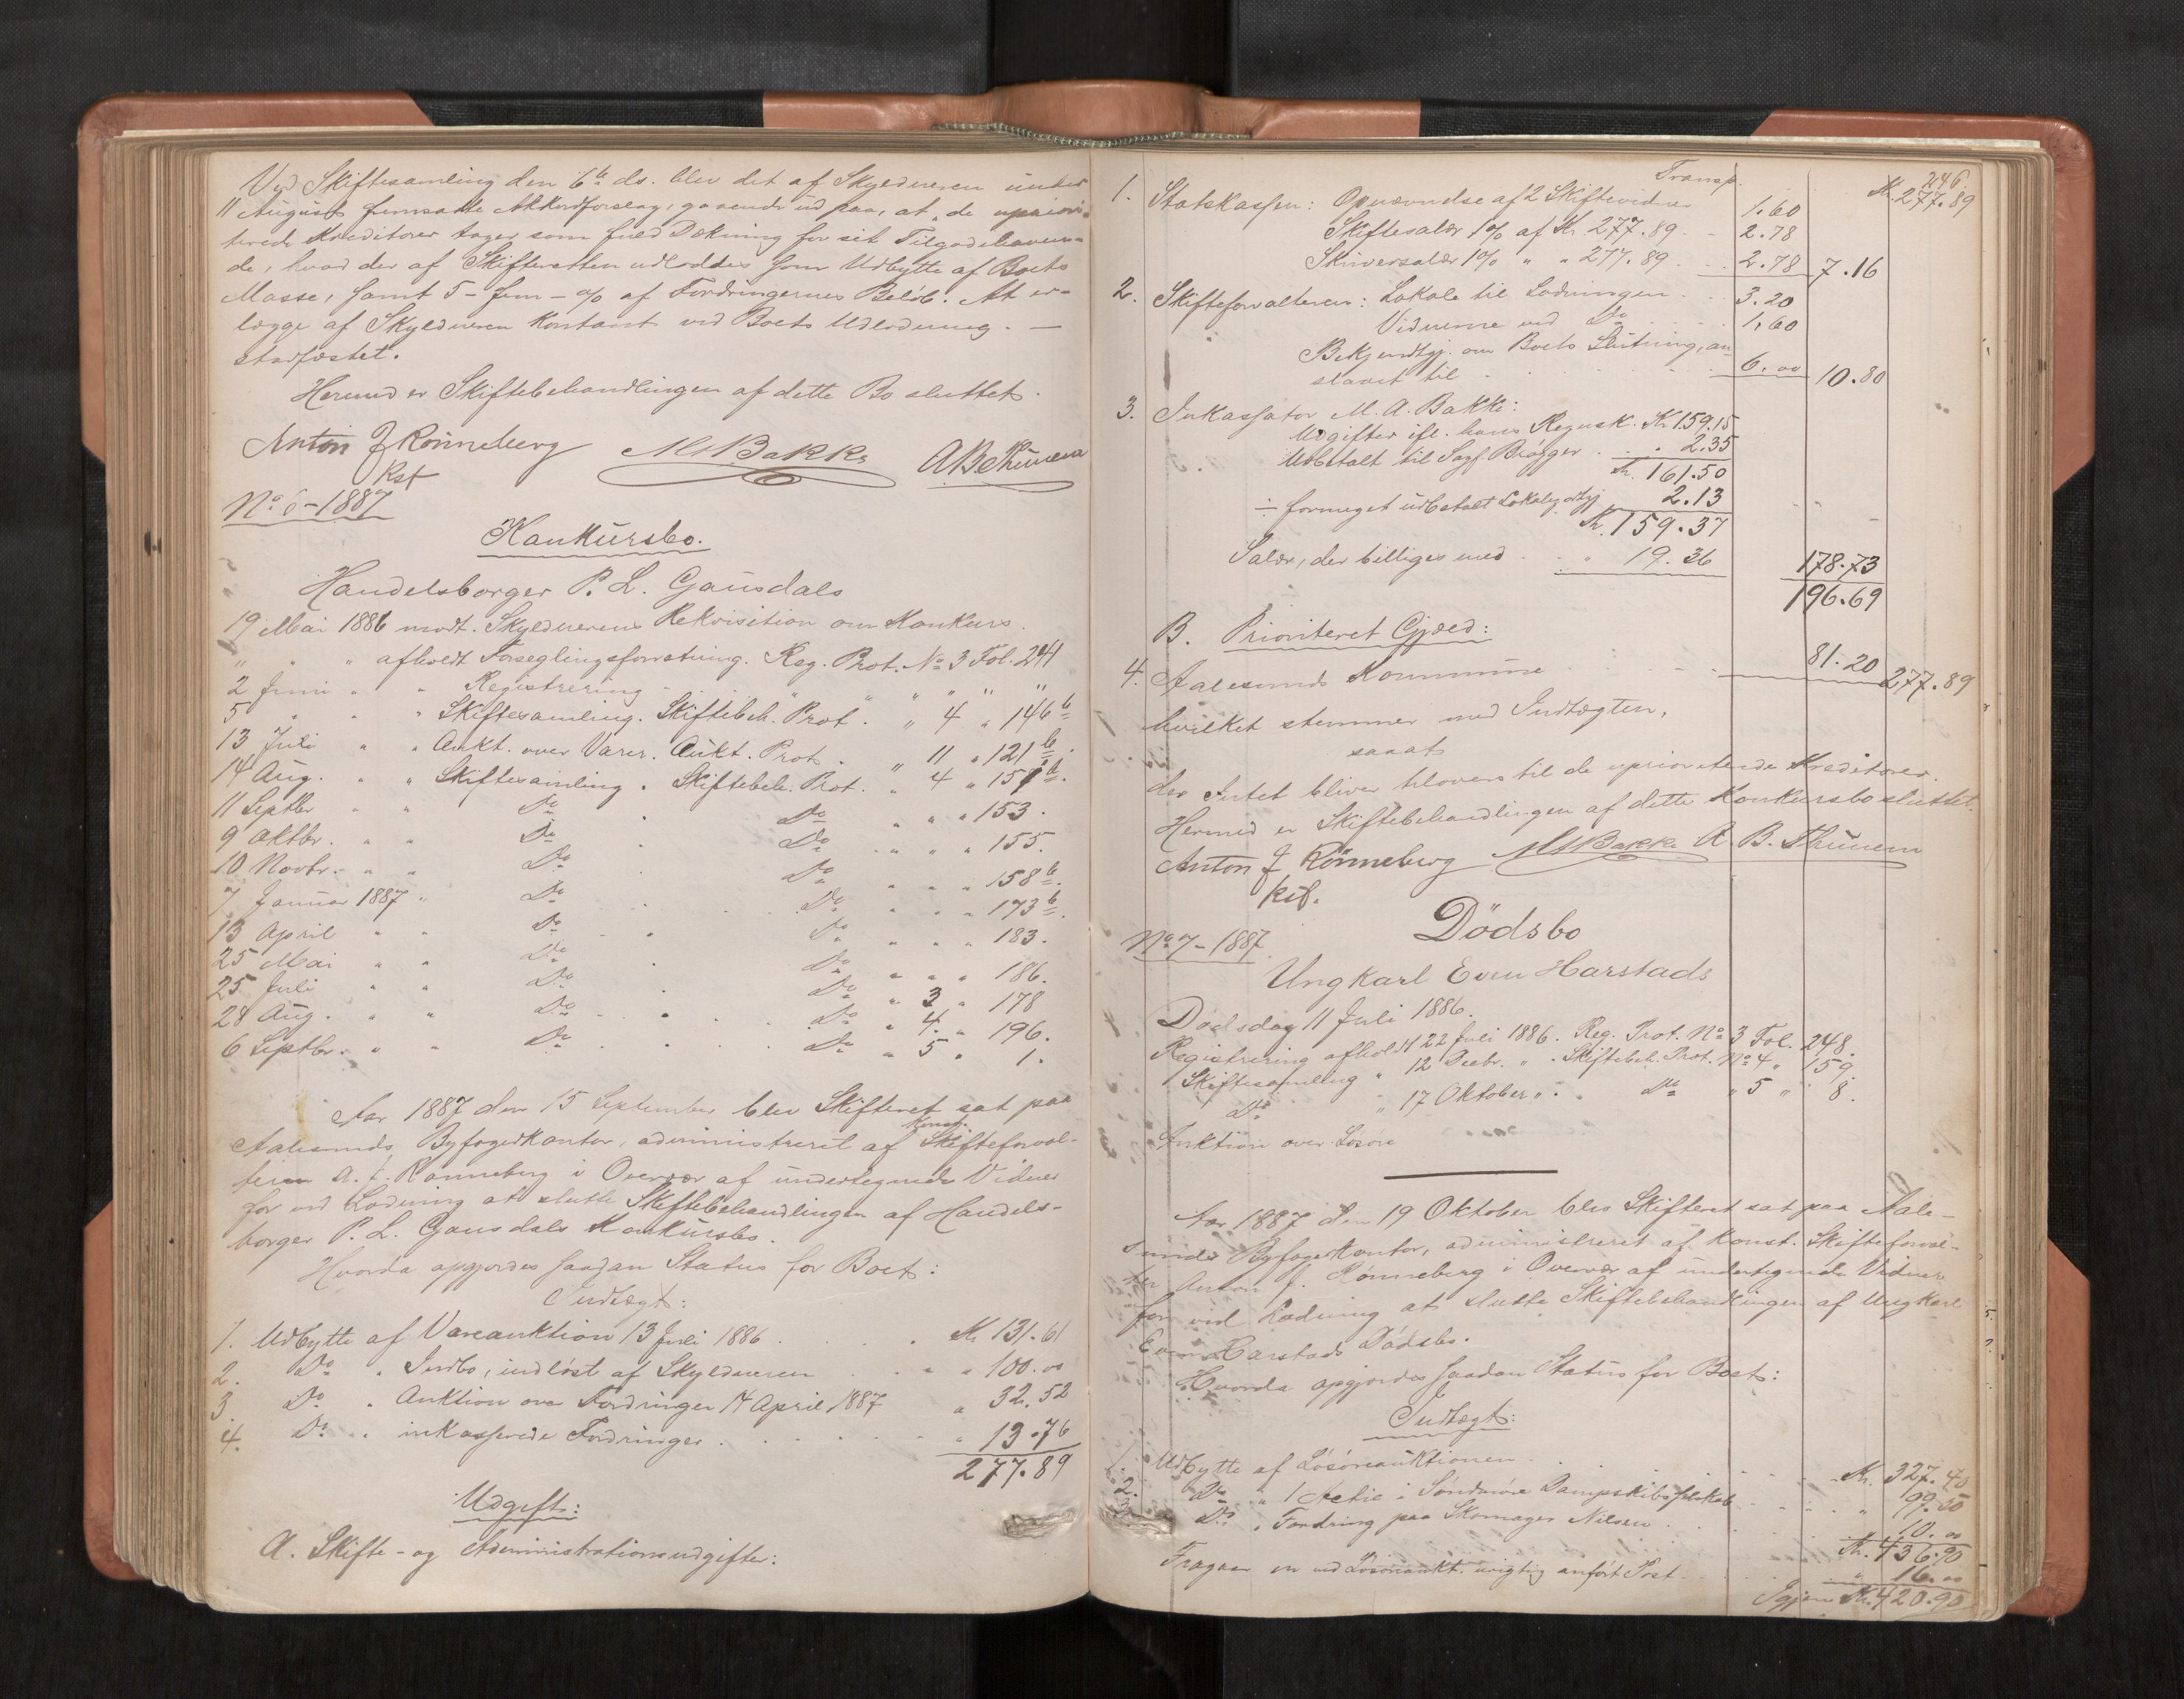 Ved Skiftesamling den 6te ds. blev det af Skyldneren under
11 August fremsatte Akkordforslag, gaaende ud paa, at „de upriori-
terede Kreditorer tager som fuld Dækning for sit Tilgodehaven-
de, hvad der af Skifteretten udloddes som Udbytte af Boets
Masse, samt 5 - fem - % af Fordringernes Beløb. At er-
lægge af Skyldneren kontant ved Boets Udlodning. —
stadfæstet.
Hermed er Skiftebehandlingen af dette Bo sluttet.
Anton J Rönneberg M A Bakke A B Thünem
Kst
No 6-1887
Konkursbo.
Handelsborger P. L. Gausdals
19 Mai 1886 modt. Skyldnerens Rekvisition om Konkurs.
" " " afholdt Forseglingsforretning. Reg. Prot. No 3 Fol. 241
2 Juni " " Registrering " " " " "
5 " " " Skiftesamling. Skiftebeh. Prot. " 4 " 146b
13 Juli " " Aukt. over Varer. Aukt. Prot. " 11 " 121b.
14 Aug. " " Skiftesamling. Skiftebeh. Prot. " 4 " 151b.
11 Septbr " " Do Do " " " 153.
9 Oktbr. " " Do Do " " " 155.
10 Novbr. " " Do Do " " " 158b.
7 Januar 1887 " Do Do " " " 173b.
13 April " " Do Do " " " 183.
25 Mai " " Do Do " " " 186.
25 Juli " " Do Do " 3 " 178
28 Aug. " " Do Do " 4. " 196.
6 Septbr. " " Do Do " 5 " 1.
Aar 1887 den 15 September blev Skifteret sat paa
Aalesunds Byfogedkontor, administreret af konst. Skifteforval-
teren A. J. Rönneberg i Overvær af undertegnede Vidner
for ved Lodning at slutte Skiftebehandlingen af Handels-
borger P. L. Gausdals Konkursbo.
Hvorda opgjordes saadan Status for Boet:
Indtægt:
1. Udbytte af Vareauktion 13 Juli 1886 . . Kr. 131.61
2. Do " Indbo, indløst af Skyldneren . " " 100.00
3. Do " Auktion over Fordringer 14 April 1887 " 32.52
4. Do " inkasserede Fordringer . . . . " 13.76
277.89
Udgift:
A. Skifte- og Administrationsudgifter:
246.
Transp. Kr. 277.89
1. Statskassen: Opnævnelse af 2 Skiftevidner 1.60
Skiftesalær 1% af Kr. 277.89 . 2.78
Skriversalær 1% " " 277.89 . 2.78 7.16
2. Skifteforvalteren: Lokale til Lodningen . . 3.20
Vidnerne ved Do . . . 1.60
Bekjendtgj. om Boets Slutning, an-
slaaet til . . . . . . 6.00 10.80
3. Inkassator M. A. Bakke:
Udgifter ifl. hans Regnsk. Kr 159.15
Udbetalt til Sagf. Brögger . . " 2.35
Kr. 161.50
÷ formeget udbetalt Lokalegodtgj. 2.13
Kr. 159.37
Salær, der billiges med . . " 19.36 178.73
196.69
B. Prioriteret Gjæld:
4. Aalesunds Kommune . . . . 81.20 277.89
hvilket stemmer med Indtægten,
saaat
der Intet bliver tilovers til de uprioriterede Kreditorer.
Hermed er Skiftebehandlingen af dette Konkursbo sluttet.
Anton J Rönneberg M A Bakke A. B. Thünem
Kst.
Dödsbo
No 7-1887.
Ungkarl Even Harstads
Dødsdag 11 Juli 1886.
Registrering afholdt 22 Juli 1886. Reg. Prot. No 3 Fol. 248.
Skiftesamling " 12 Decbr. " . Skiftebeh. Prot. No 4 " 159.
Do " 17 Oktober " . . Do " 5 " 8.
Auktion over Løsøre
Aar 1887 den 19 Oktober blev Skifteret sat paa Aale-
sunds Byfogedkontor, administreret af konst. Skifteforval-
ter Anton J. Rönneberg i Overvær af undertegnede Vidner
for ved Lodning at slutte Skiftebehandlingen af Ungkarl
Even Harstads Dødsbo.
Hvorda opgjordes saadan Status for Boet:
Indtægt:
1. Udbytte af Løsøreauktionen . . . . . Kr. 327.40
2. Do " 1 Actie i Søndmøre Dampskibsselskab . . . " 99.50
3. Do " Fordring paa Skomager Nilsen . . . . 10.00
Kr. 436.90
Fragaar en ved Løsøreaukt. urigtig anført Post . . . " 16.00
Igjen Kr. 420.90